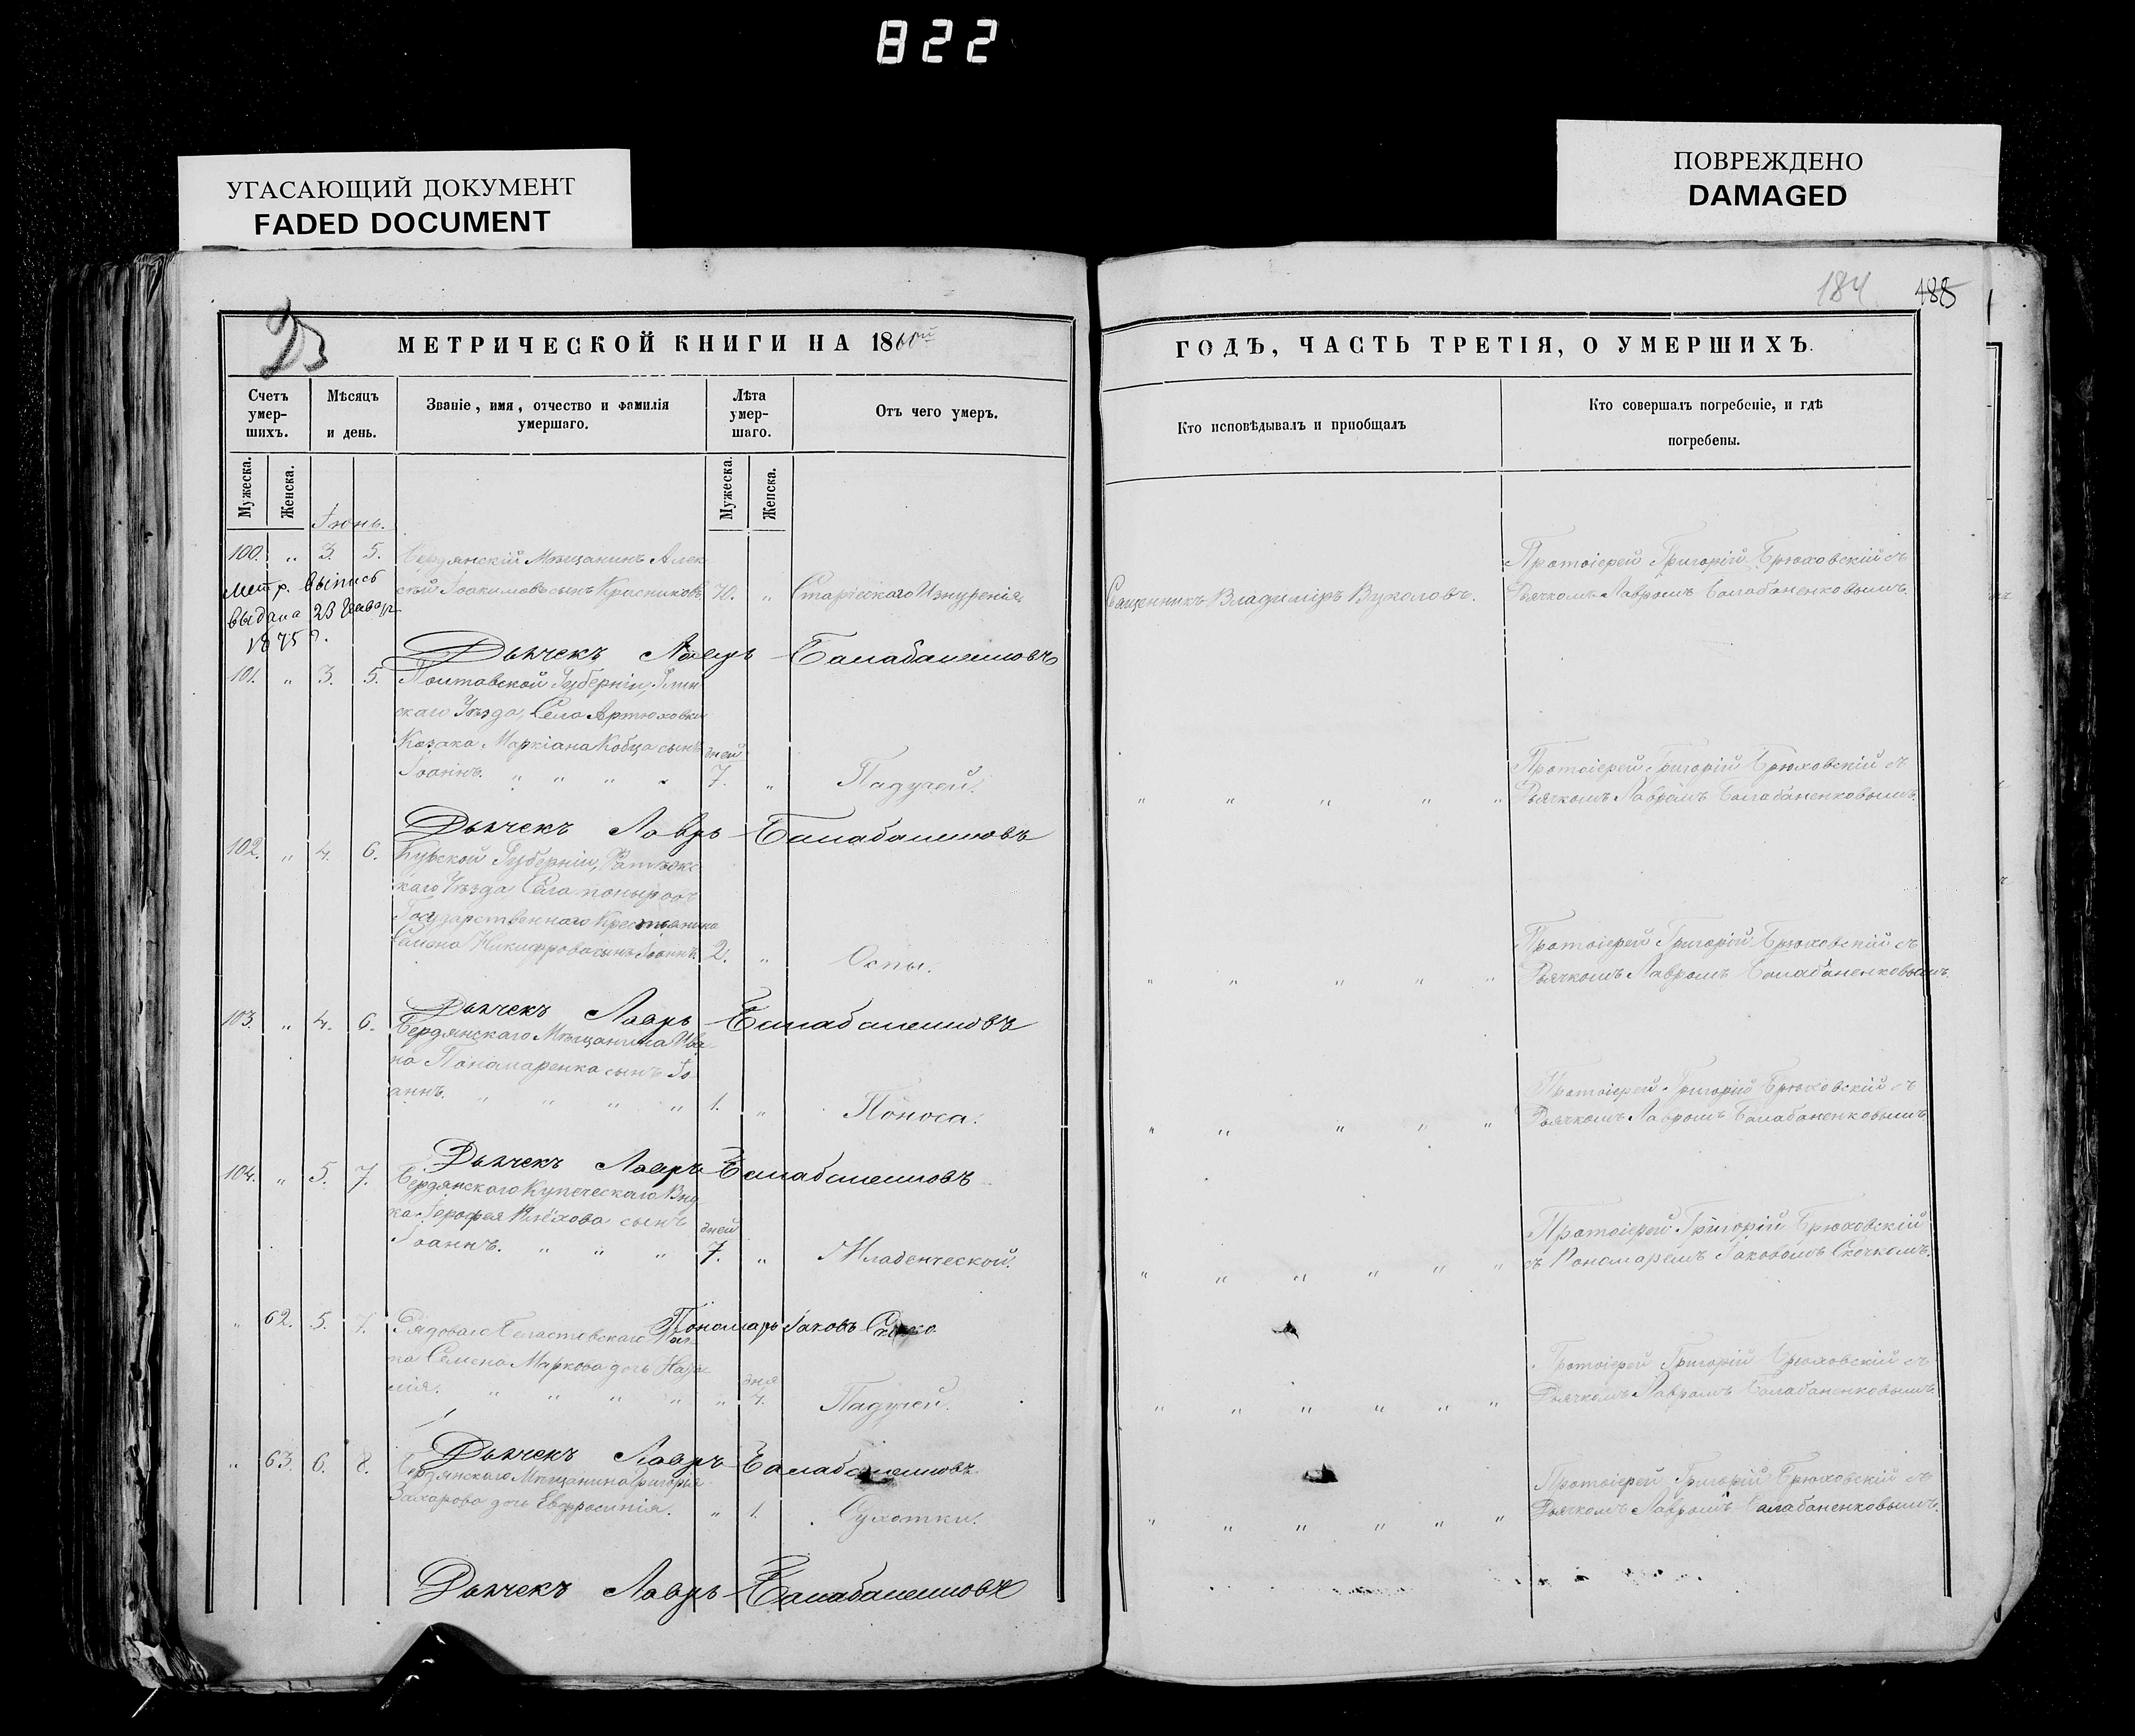 822
УГАСАЮЩИЙ ДОКУМЕНТ
FADED DOCUMENT
ПОВРЕЖДЕНО
DAMAGED
184 185
МЕТРИЧЕСКОЙ КНИГИ НА 1860ый
ГОДЪ, ЧАСТЬ ТРЕТІЯ, О УМЕРШИХЪ.
Счетъ умер-шихъ.
Мѣсяцъ и день.
Званіе, имя, отчество и фамилія умершаго.
Лѣта умер-шаго.
Отъ чего умеръ.
Кто исповѣдывалъ и пріобщалъ
Кто совершалъ погребеніе, и гдѣ погребены.
Мужеска.
Женска.
Мужеска.
Женска.
Іюнь.
100. " 3. 5. Бердянскій Мѣщанинъ Алек
сѣй Іоакимовъ сынъ Красниковъ 70. " Старческаго Изнуренія.
Метр. выпись
выдана 23 Января
1875 г.
Священникъ Владиміръ Вуколовъ.
Протоіерей Григорій Брюховскій съ
Дьячкомъ Лавромъ Балабаненковымъ.
Дьячекъ Лавръ Балабаненковъ
101. " 3. 5. Полтавской Губерніи,
скаго Уѣзда, Села Артюховки
Козака Маркіана Кобца сынъ дней
Іоаннъ. " " " " 7. " Падучей.
" " " " "
Протоіерей Григорій Брюховскій съ
Дьячкомъ Лавромъ Балабаненковымъ.
Дьячекъ Лавръ Балабаненковъ
102. " 4. 6. Курской Губерніи,
каго Уѣзда, Села
Государственнаго Крестьянина
Никифорова сынъ Іоаннъ 2. " Оспы.
" " " " "
Протоіерей Григорій Брюховскій съ
Дьячкомъ Лавромъ Балабаненковымъ.
Дьячекъ Лавръ Балабаненковъ
103. " 4. 6. Бердянскаго Мѣщанина Ива
на Понамаренка сынъ Іо
аннъ. " " " " 1. " Поноса.
" " " " "
Протоіерей Григорій Брюховскій съ
Дьячкомъ Лавромъ Балабаненковымъ.
Дьячекъ Лавръ Балабаненковъ
104. " 5. 7. Бердянскаго Купеческаго Вну
ка Іерофея сынъ дней
Іоаннъ. " " " 7. " Младенческой.
" " " " " "
Протоіерей Григорій Брюховскій
съ Пономаремъ Іаковомъ Скочкомъ.
Пономарь Іаковъ
" 62. 5. 7. Рядоваго
Семена Маркова дочь дня
" " " " " 4. Падучей.
" " " " " "
Протоіерей Григорій Брюховскій съ
Дьячкомъ Лавромъ Балабаненковымъ.
Дьячекъ Лавръ Балабаненковъ
" 63. 6. 8. Бердянскаго Мѣщанина Григорія
Захарова дочь Евфросинія. " 1. Сухотки.
" " " " " "
Протоіерей Григорій Брюховскій съ
Дьячкомъ Лавромъ Балабаненковымъ.
Дьячекъ Лавръ Балабаненковъ